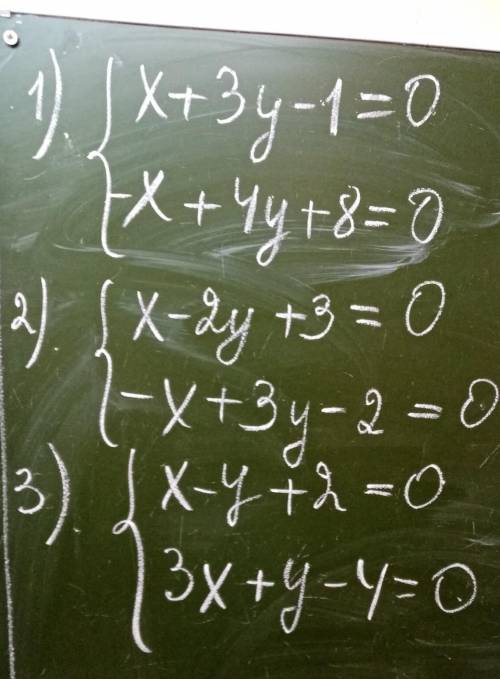 1) { x+3y-1=0
-x+4y+8=0
2) { x-2y+3=0
-x+3y-2=0
3) { x-y+2=0
3x+y-4=0